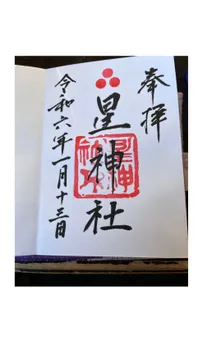 奉拝
星神社
令和六年一月十三日